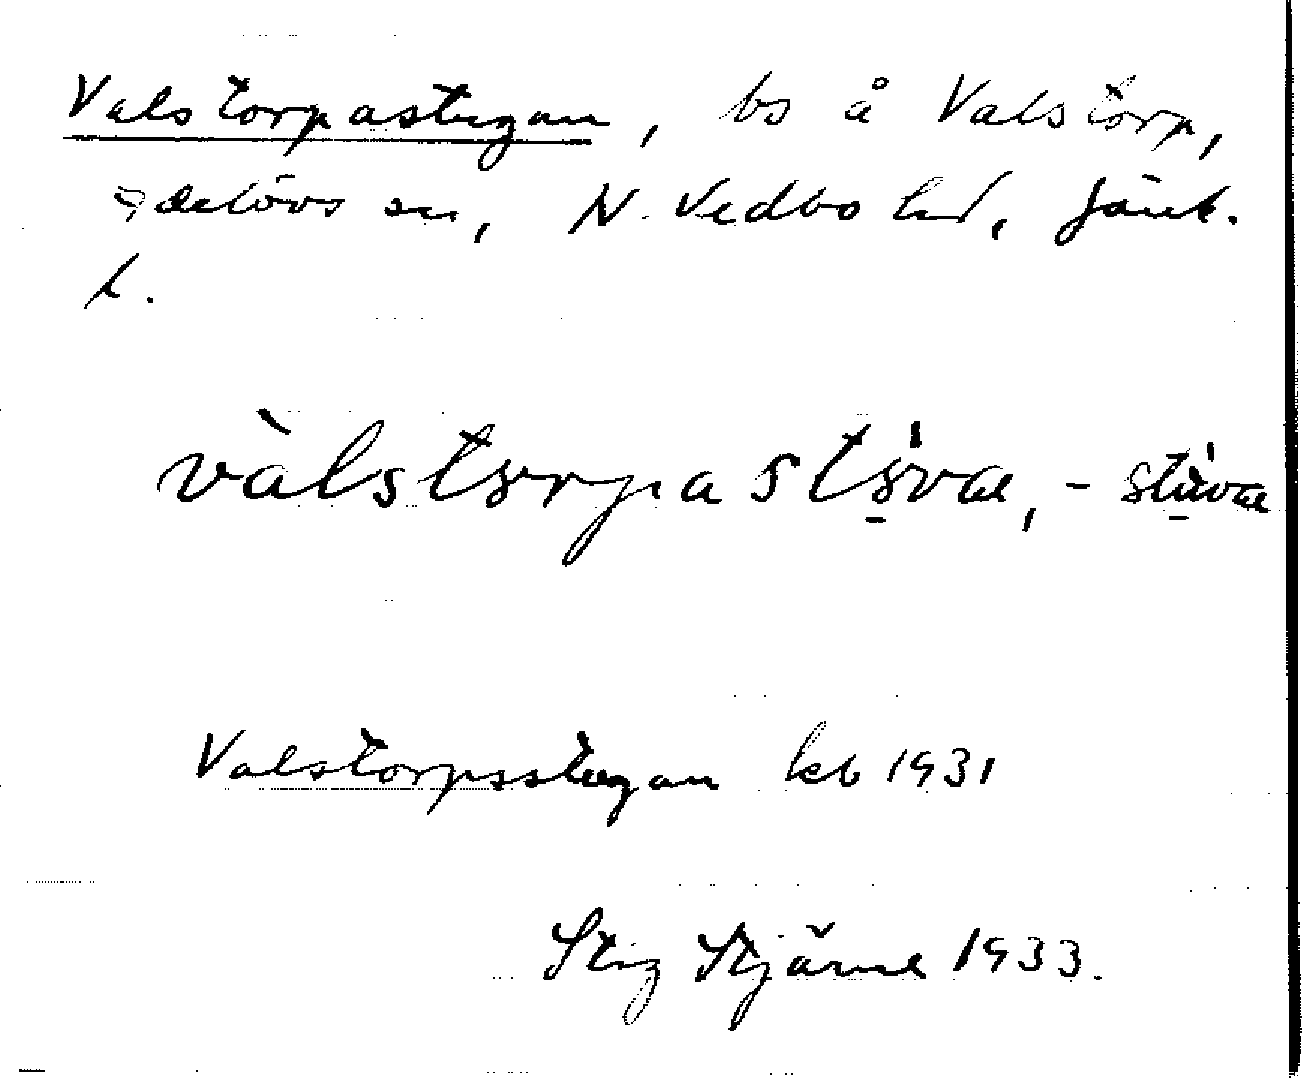 Valstorpastugan, bs å Valstorp,
Adelövs sn, N. Vedbo hd, Jönk.
l.
vàlstorpastøva, - stuva
Valstorpsstugan kb 1931
Stig Stjärne 1933.